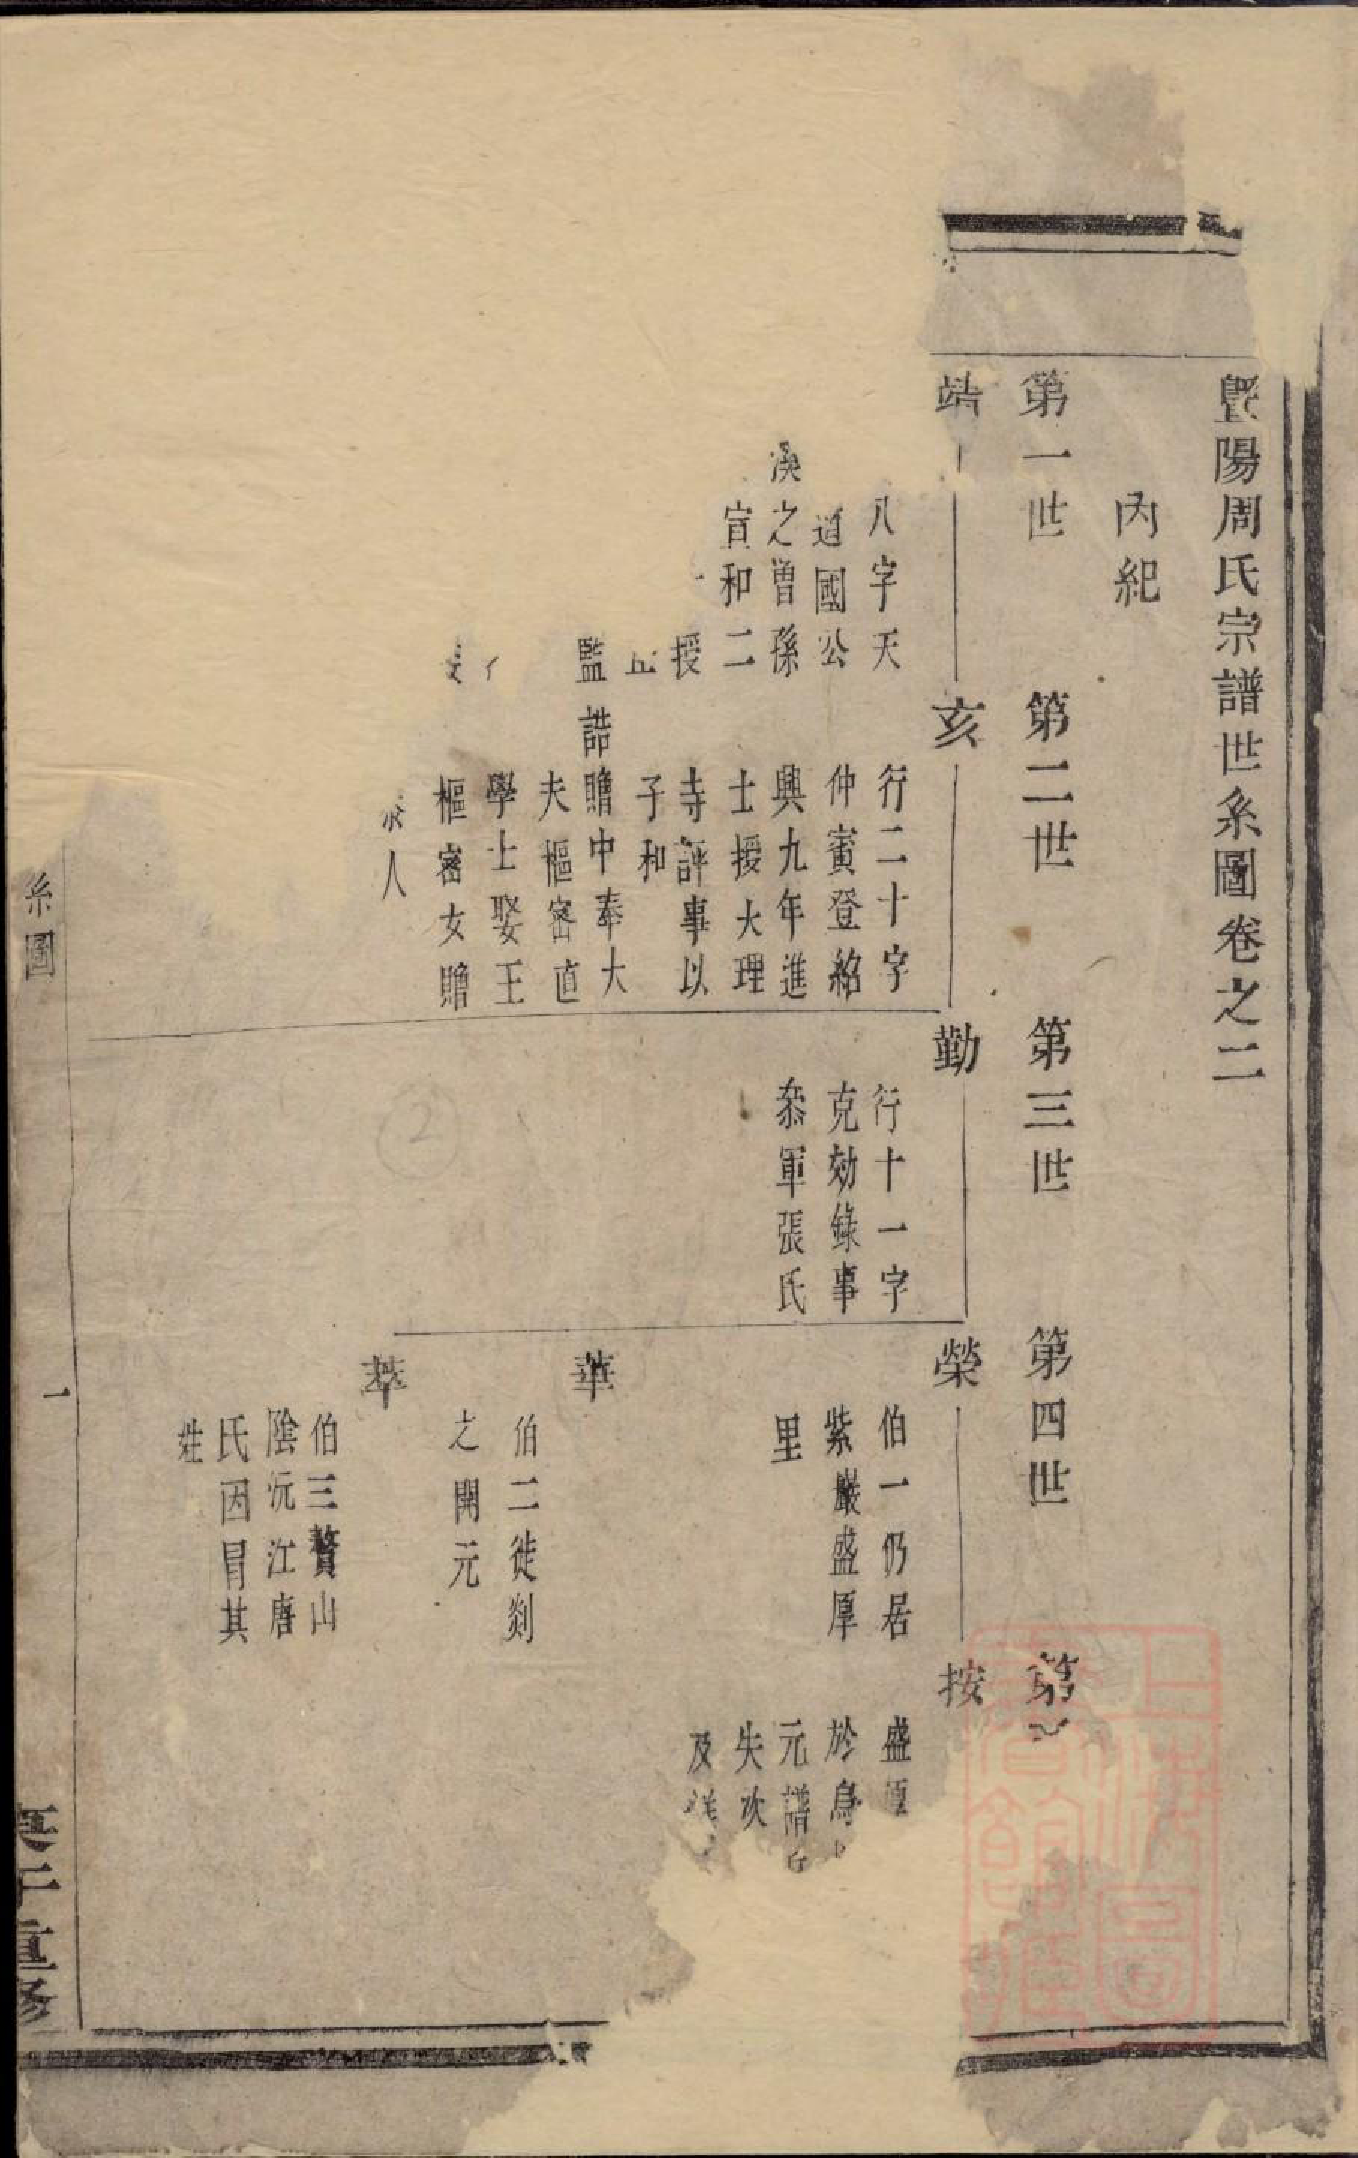 暨陽周氏宗譜世系圖卷之二
內紀
第一世
第二世
第三世
第四世
第
靖
八字天
道國公
渙之曽孫
宣和二
授
監
亥
行二十字
仲賓登紹
興九年進
士授大理
寺評事以
子和
誥贈中奉大
夫樞密直
學士娶王
樞密女贈
人
勤
行十一字
克効錄事
叅軍張氏
榮
伯一仍居
紫巖盛厚
里
華
伯二徙剡
之開元
萃
伯三贅山
陰沅江唐
氏因冒其
姓
按
盛厚
於烏
元譜
失次
及
系圖
一
庚午重修
上海圖書館藏